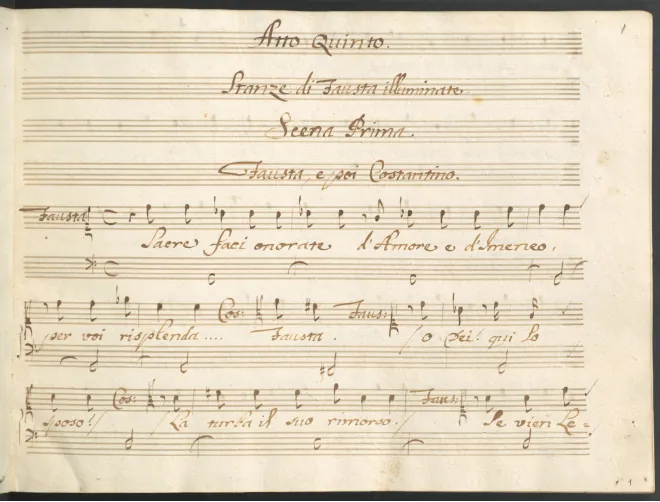 1
Atto Quinto.
Stanze di Fausta illuminate
Scena Prima
Fausta, e poi Costantino.
Fausta
Sacre faci onorate d'Amore e d'Imeneo,
Cos: Faus:
per voi risplenda.... Fausta. /O Dei! qui lo
Cos: Faus:
sposo!/ /La turba il suo rimorso./ Se vieni Le=
1